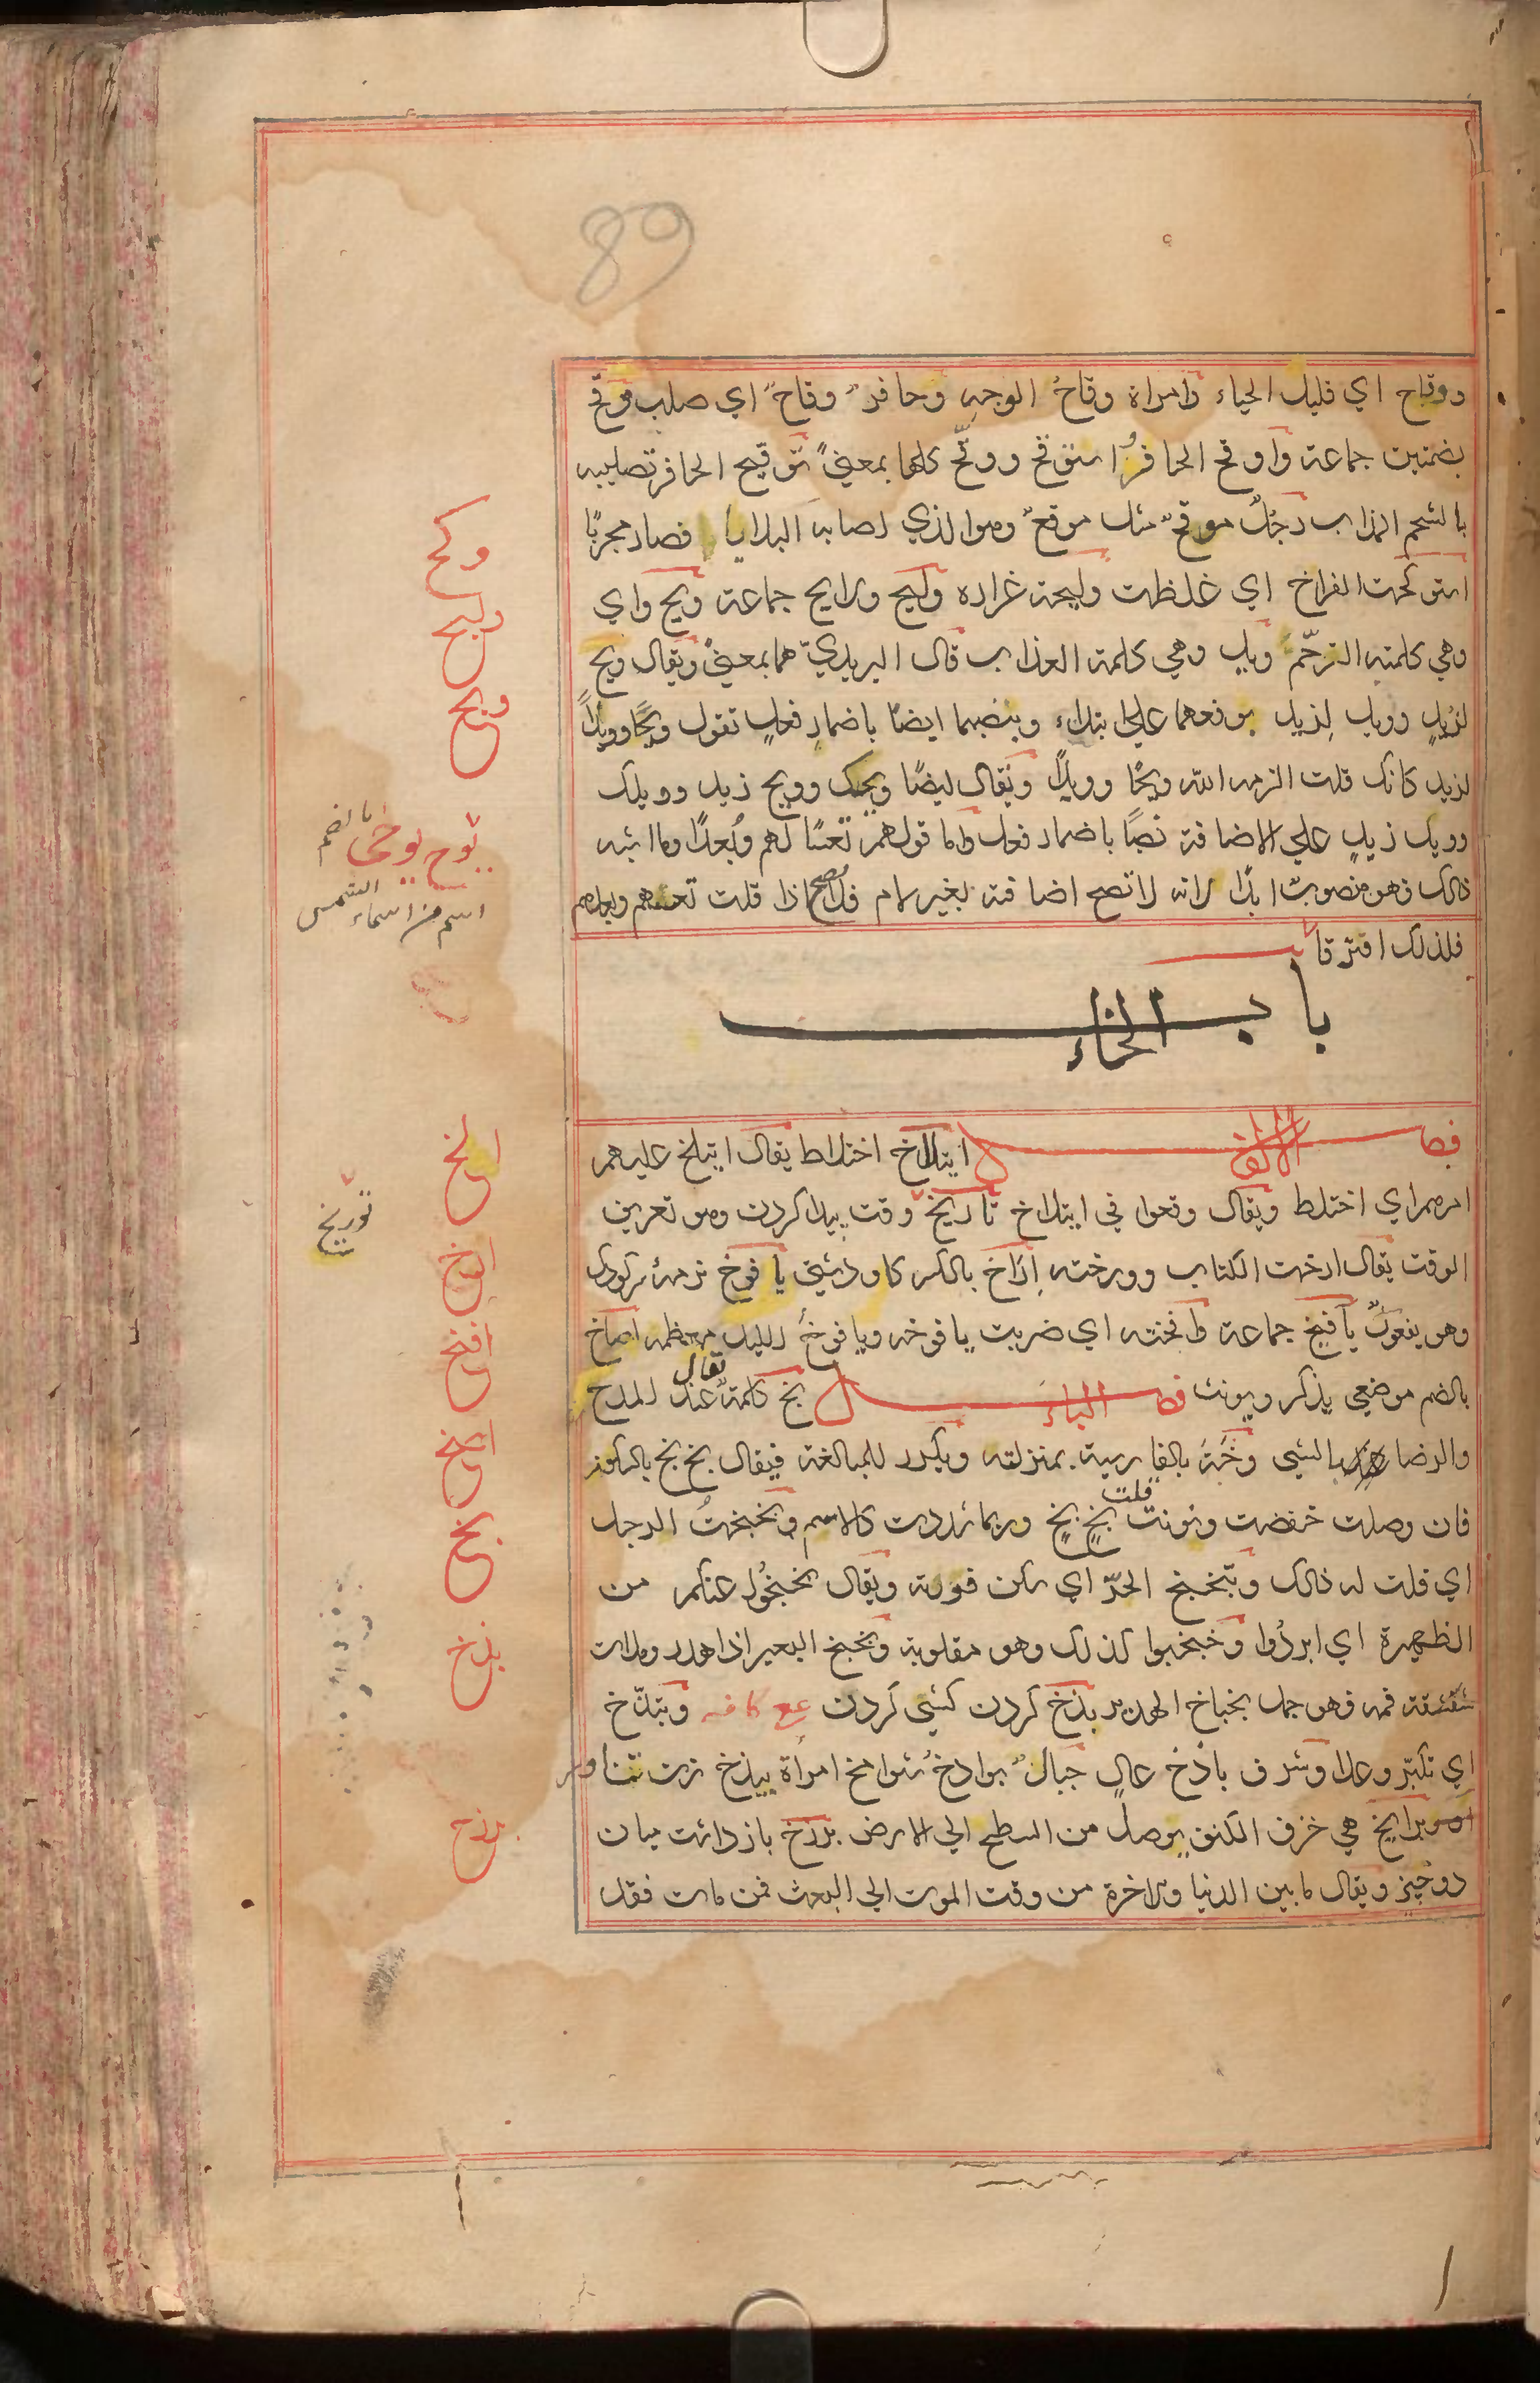 89
ووقاح اي قليل الحياء وامراة وقاحُ الوجهِ وحافرٌ وقاحٌ اي صلب موقح
بضمتين جماعة واوقح الحافرُ استوقح ووقّح كلها بمعنيً توقيح الحافر تصليبه
بالشحم المذاب رجلٌ موقحٌ مثل موقعٌ وهو الذي اصابه البلايا فصار مجربًا
استوكحت الفراخ اي غلظت وليحة غراره وليح ولايح جماعة ويح واي
وهي كلمة الترحّم ويل وهي كلمة العذاب قال اليزيديّ هما بمعنيً ويقال ويح
لزيدٍ وويل لِزيد يرفعهما علي ابتداء وينصبهما ايضًا باضمارِ فعلٍ تقول ويحًا وويلاً
لزيد كانك قلت الزمه الله ويحًا وويلاً ويقال ايضًا ويحك وويح زيد وويلك
وويل زيدٍ علي الاضافة نصبًا باضمار فعل واما قولهم تعسًا لهم وبُعدًا وما اشبه
ذالك فهو منصوبٌ ابدًا لانه لا تصح اضافته بغير لام فلا يصح اذا قلت تعسهم وبعدهم
فلذلك افترقا
باب الخاء
فصل الالف ايتلاخ اختلاط يقال ايتلخ عليهم
امرهم اي اختلط ويقال وقعوا في ايتلاخ تاريخ وقت پيدا كردن وهو تعريف
الوقت يقال ارخت الكتاب وورخته اِرَاخ بالكسر كاو دشتي يافوخ نرمۀ سر كودك
وهو يفعولٌ يآفيخ جماعة وافخته اي ضربت يافوخه ويافوخُ الليل معظمه اضاخ
بالضم موضعي يذكر ويونث فصل الباء بخ كلمةٌ تقال عند المدح
والرضا بالشي وخَهْ بالفارسية بمنزلته ويكرر للمبالغة فيقال بخ بخ بالسكون
فان وصلت خفضت ونونت قلت بخٍ بخٍ وربما شددت كالاسم وبخبختُ الرجل
اي قلت له ذالك وتبخبخ الحرّ اي سكن فوره ويقال بخبخُوا عنكم من
الظهيرة اي ابردُوا وخبخبوا كذلك وهو مقلوبة وبخبخ البعير اذا هدر وملات
شقشقة فمه فهو جمل بخباخ الهدير بذخ كردن كشي كردن عع كافه وتبذّخ
اي تكبّر وعلا وشرف باذخ عالٍ جبالٌ بواذخُ شوامخ امراة بيذخ زن تناور
برابخ هي خزف الكنف يوصل من السطح الي الارض برزخ بازداشت ميان
دو چيز ويقال ما بين الدنيا والاخرة من وقت الموت الي البعث فمن مات فقد
وكح
وليح
ويح
يوح يوحي بالضم
اسم من اسماء الشمس
ارخ
توريخ
افخ
بخ
بذخ
برزخ